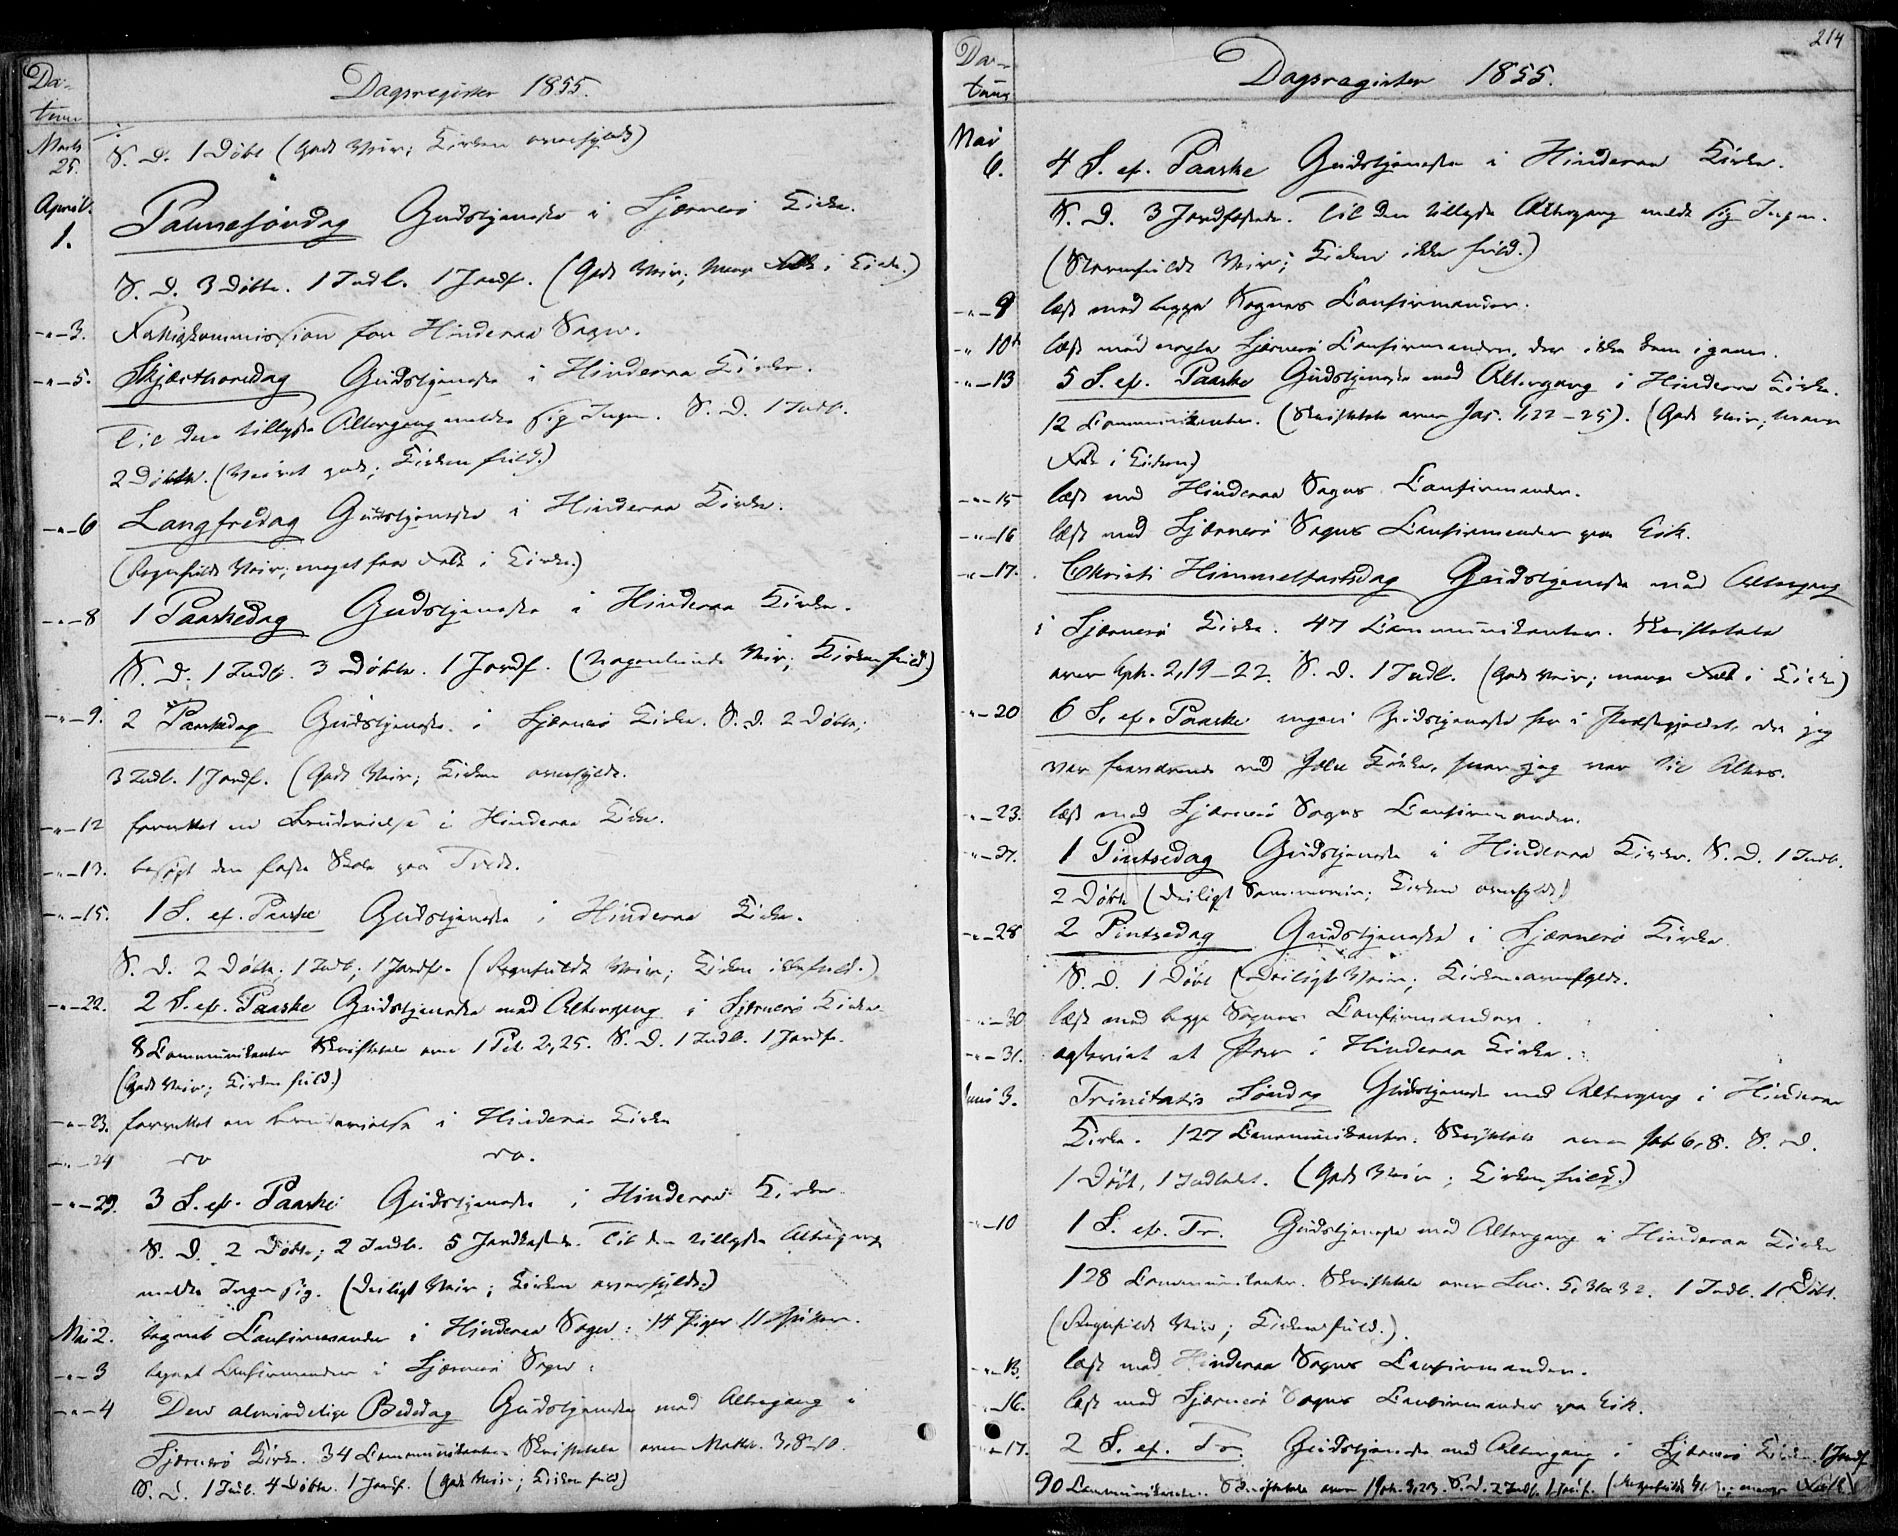 Da-
tum
Dagsregister 1855.
Marts
25.
S. D. 1 Døbt (Godt Veir; Kirken overfyldt)
April
1.
Palmesøndag Gudstjeneste i Sjærnerö Kirke.
S. D. 3 Døbte. 1 Indl. 1 Jordf. (Godt Veir; mange Folk i Kirke.)
-"-3. Fattigkommission for Hinderaa Sogn.
-"-5. Skjærthorsdag Gudstjeneste i Hinderaa Kirke.
Til den tillyste Altergang meldte sig Ingen. S. D. 1 Indl.
2 Døbte. (Veiret godt; Kirken fuld.)
-"-6 Langfredag Gudstjeneste i Hinderaa Kirke.
(Regnfuldt Veir; meget faa Folk i Kirke.)
-"-8 1 Paaskedag Gudstjeneste i Hinderaa Kirke.
S. D. 1 Indl. 3 Døbte. 1 Jordf. (Nogenlunde Veir; Kirken fuld.)
-"-9. 2 Paaskedag Gudstjeneste i Sjærnerö Kirke. S. D. 2 Døbte;
3 Indl. 1 Jordf. (Godt Veir; Kirken overfyldt.
-"-12 forrettet en Brudevielse i Hinderaa Kirke.
-"-13. besøgt den faste Skole paa Tveit.
-"-15. 1 S. ef. Paaske Gudstjeneste i Hinderaa Kirke.
S. D. 2 Døbte; 1 Indl; 1 Jordf. (Regnfuldt Veir; Kirken ikke fuld.)
-"-22. 2 S. ef. Paaske Gudstjeneste med Altergang i Sjærnerö Kirke.
8 Communikanter Skriftetale over 1 Pet. 2,25. S. D. 1 Indl. 1 Jordf.
(Godt Veir; Kirken fuld.)
-"-23. forrettet en Brudevielse i Hinderaa Kirke
-"-24 do do.
-"-29. 3 S. ef. Paaske Gudstjeneste i Hinderaa Kirke.
S. D. 2 Døbte; 2 Indl. 5 Jordfæstede. Til den tillyste Altergang
meldte Ingen sig. (Deiligt Veir; Kirken overfyldt.)
Mai 2. tegnet Confirmander i Hinderaa Sogn: 14 Piger 11
-"-3 tegnet Confirmander i Sjærnerö Sogn:
-"-4 Den almindelige Bededag Gudstjeneste med Altergang i
Sjærnerö Kirke. 34 Communikanter Skriftetale over Matth. 3,8-10.
S. D. 1 Indl. 4 Døbte. 1 Jordf. (Godt Veir; Kirken fuld)
214
Da-
tum
Dagsregister 1855.
Mai
6. 4 S. ef. Paaske Gudstjeneste i Hinderaa Kirke.
S. D. 3 Jordfæstede. Til den tillyste Altergang meldte sig Ingen.
(Stormfuldt Veir; Kirken ikke fuld.)
-"-9 læst med begge Sognes Confirmander.
-" 10de læst med nogle Sjærnerö Confirmander, der ikke kom igaar.
-"-13 5 S. ef. Paaske Gudstjeneste med Altergang i Hinderaa Kirke.
12 Communikanter. (Skriftetale over Jac. 1,22-25). (Godt Veir; mange
Folk i Kirken)
-"-15 læst med Hinderaa Sogns Confirmander.
-"-16 læst med Sjærnerö Sogns Confirmander paa Eik.
-"-17. Christi Himmelfartsdag Gudstjeneste med Altergang
i Sjærnerö Kirke. 47 Communikanter. Skriftetale
over Eph. 2,19-22. S. D. 1 Indl. (Godt Veir; mange Folk i Kirke)
-"-20 6 S. ef. Paaske ingen Gudstjeneste her i Præstegjeldet, da jeg
var fraværende ved Jelse Kirke, hvor jeg var til Alters.
-"-23. læst med Sjærnerö Sogns Confirmander.
-"-27. 1 Pintsedag Gudstjeneste i Hinderaa Kirke. S. D. 1 Indl.
2 Døbte (Deiligt Sommerveir; Kirken overfyldt)
-"-28 2 Pintsedag Gudstjeneste i Sjærnerö Kirke
S. D. 1 Døbt (Deiligt Veir; Kirken overfyldt.
-"-30 læst med begge Sognes Confirmander.
-"-31. i Hinderaa Kirke.
Juni 3. Trinitatis Søndag Gudstjeneste med Altergang i Hinderaa
Kirke. 127 Communikanter. Skriftetale over 6,8. S. D.
1 Døbt, 1 Indledet. (Godt Veir; Kirken fuld.)
-"-10 1 S. ef. Tr. Gudstjeneste med Altergang i Hinderaa Kirke
128 Communikanter. Skriftetale over Luc. 5,31 32. 1 Indl. 1 Døbt.
(Regnfuldt Veir; Kirken fuld.).
-"-13. læst med Hinderaa Sogns Confirmander.
-"-16. læst med Sjærnerö Sogns Confirmander paa Eik.
-"-17. 2 S. ef. Tr. Gudstjeneste med Altergang i Sjærnerö Kirke. 1 Jordf
90 Communikanter. Skriftetale over 1 Joh. 3,23. S. D. 2 Indl. 1 Jordf. (Regnfuldt Veir; mange Folk)